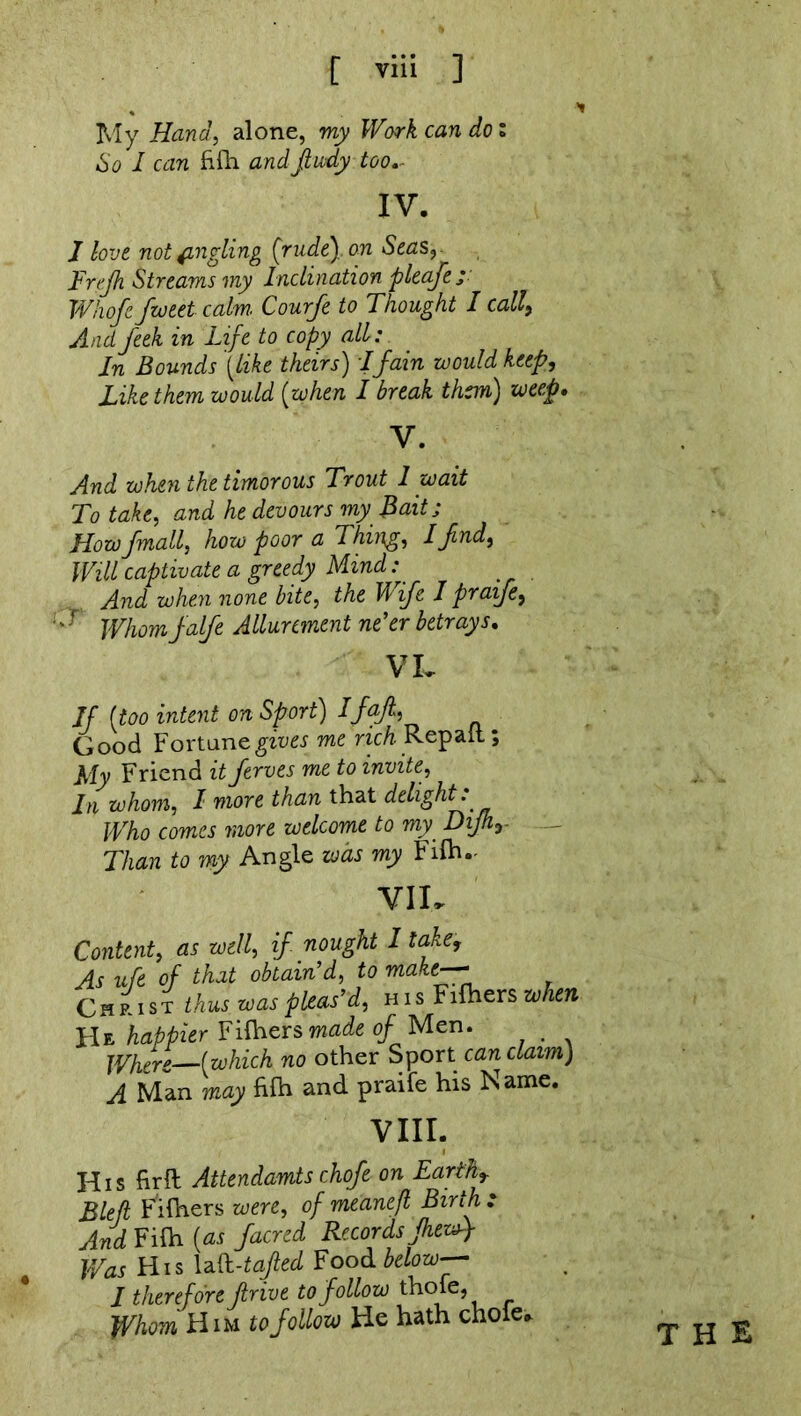 [ viii ]
My Hand, alone, my Work can do:
So I can fiſh and ſtudy too.
IV.
I love not angling (rude) on Seas,
Freſh Streams my Inclination pleaſe;
Whoſe ſweet calm Courſe to Thought I call,
And ſeek in Life to copy all:
In Bounds (like theirs) I fain would keep,
Like them would (when I break them) weep.
V.
And when the timorous Trout I wait
To take, and he devours my Bait;
How ſmall, how poor a Thing, I find,
Will captivate a greedy Mind:
And when none bite, the Wiſe I praiſe,
Whom falſe Allurement ne'er betrays.
VI.
If (too intent on Sport) I faſt,
Good Fortune gives me rich Repaſt;
My Friend it ſerves me to invite,
In whom, I more than that delight:
Who comes more welcome to my Diſh,
Than to my Angle was my Fiſh.
VII.
Content, as well, if nought I take,
As uſe of that obtain'd, to make—
CHRIST thus was pleas'd, HIS Fiſhers when
HE happier Fiſhers made of Men.
Where—(which no other Sport can claim)
A Man may fiſh and praiſe his Name.
VIII.
HIS firſt Attendamts choſe on Earth,
Bleſt Fiſhers were, of meaneſt Birth:
And Fiſh (as ſacred Records ſhew)
Was HIS laſt-taſted Food below—
I therefore ſtrive to follow thoſe,
Whom HIM to follow He hath choſe.
THE